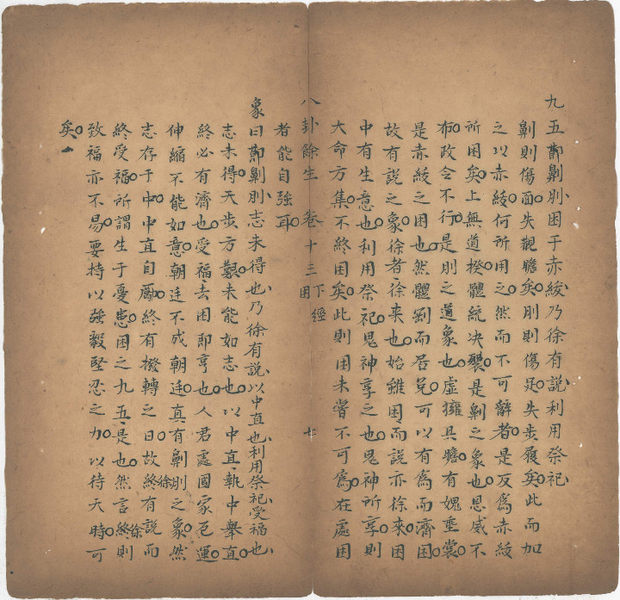 九五劓刖困于赤紱乃徐有說利用祭祀
劓則傷面失觀瞻矣刖則傷足失步履矣此而加
之以赤紱何所用之然而不可辭者是反為赤紱
所困矣上無道揆體統決襲是劓之象也恩威不
布政令不行是刖之道象也虛擁具瞻有媿垂裳
是赤紱之困也然體劉而居兌可以有為而濟困
故有說之象徐者徐來也始雖困而說亦徐來困
中有生意也利用祭祀鬼神享之也鬼神所享則
大命方集不終困矣此則困未嘗不可為在處困
八卦餘生 卷十三 下經 困 七
者能自強耳
象曰劓刖志未得也乃徐有說以中直也利用祭祀受福也
志未得天步方艱未能如志也以中直執中舉直
終必有濟也受福去困即亨也人君處國家厄運
伸縮不能如意朝廷不成朝廷真有劓刖之象然
志存于中中直自勵終有撥轉之日故終徐有說而
終受福所謂生于憂患困之九五是也然言終徐則
致福亦不易要持以強毅堅忍之力以待天時可
矣